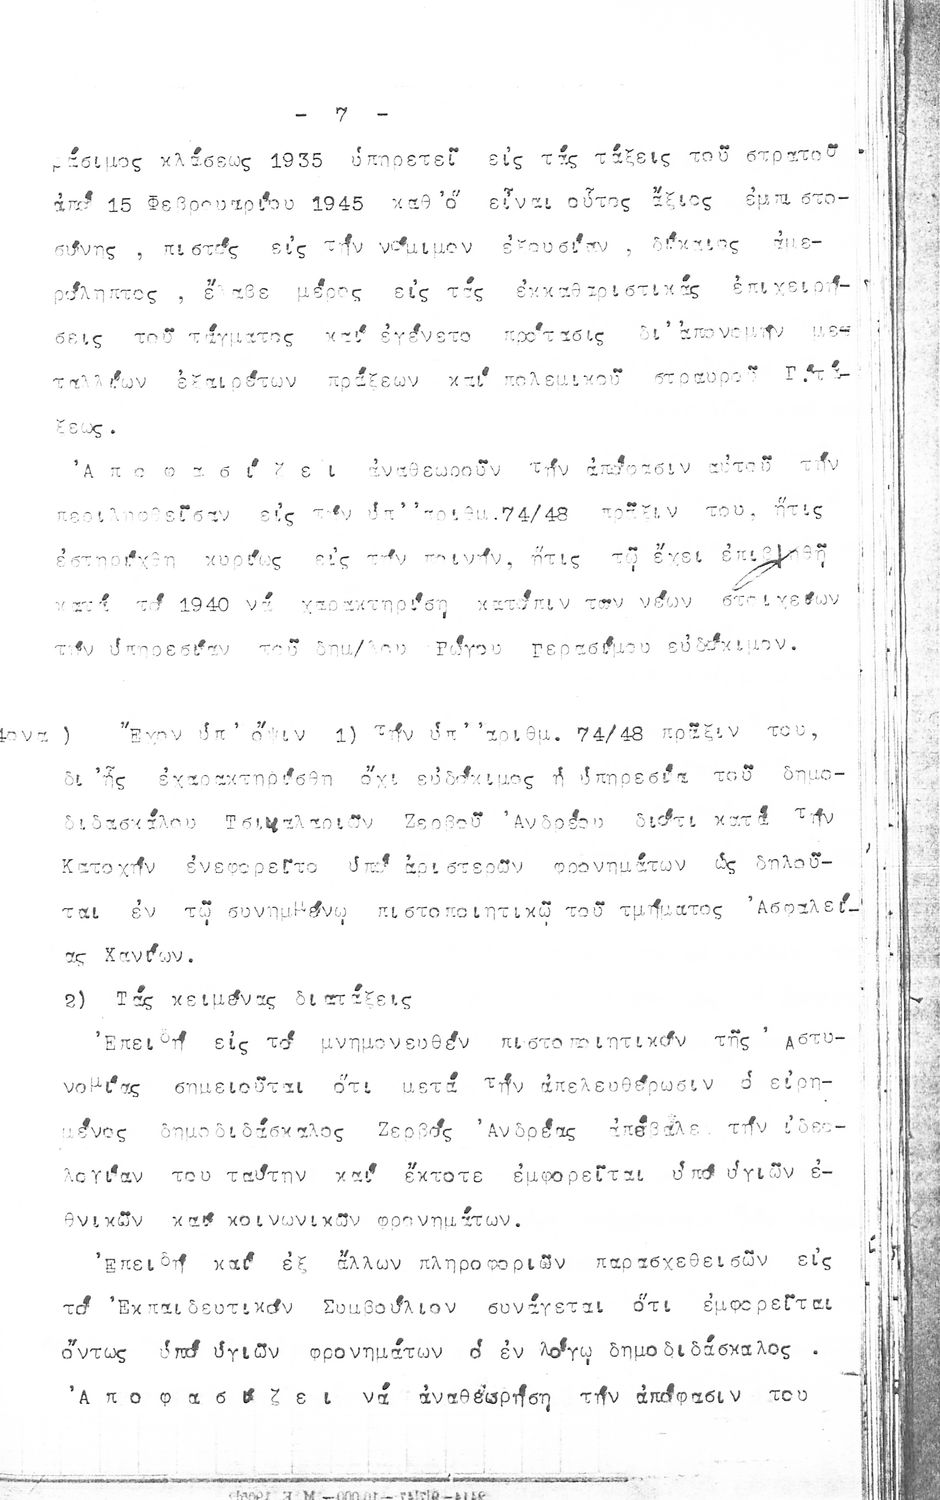 - 7 -
ράσιμος κλάσεως 1935 ὑπηρετεῖ εἰς τάς τάξεις τοῦ στρατοῦ
ἀπό 15 Φεβρουαρίου 1945 καθ'ὅ εἶναι οὗτος ἄξιος ἐμπιστο-
σύνης , πιστός εἰς τήν νόμιμον ἐξουσίαν , δίκαιος ἀμε-
ρόληπτος , ἔλαβε μέρος εἰς τάς ἐκκαθαριστικάς ἐπιχειρή-
σεις τοῦ τάγματος καί ἐγένετο πρότασις δι'ἀπονομήν με-
ταλλίων ἐξαιρέτων πράξεων καί πολεμικοῦ σταυροῦ Γ.τά-
ξεως.
'Α π ο φ α σ ί ζ ε ι ἀναθεωροῦν τήν ἀπόφασιν αὐτοῦ τήν
περιληφθεῖσαν εἰς τήν ὑπ''αριθμ.74/48 πρᾶξιν του, ἥτις
ἐστηρίχθη κυρίως εἰς τήν ποινήν, ἥτις τῷ ἔχει ἐπιβληθῆ
κατά τό 1940 νά χαρακτηρίση κατόπιν των νέων στοιχείων
τήν ὑπηρεσίαν τοῦ δημ/λου Ρώγου Γερασίμου εὐδόκιμον.
4ονα ) Ἔχον ὑπ' ὄψιν 1) Τήν ὑπ''αριθμ. 74/48 πρᾶξιν του,
δι'ἧς ἐχαρακτηρίσθη ὄχι εὐδόκιμος ἡ ὑπηρεσία τοῦ δημο-
διδασκάλου Τσικαλαριῶν Ζερβοῦ 'Ανδρέου διότι κατά τήν
Κατοχήν ἐνεφορεῖτο ὑπό ἀριστερῶν φρονημάτων ὡς δηλοῦ-
ται ἐν τῷ συνημμένῳ πιστοποιητικῷ τοῦ τμήματος 'Ασφαλεί-
ας Χανίων.
2) Τάς κειμένας διατάξεις
'Επειδή εἰς τό μνημονευθέν πιστοποιητικόν τῆς 'Αστυ-
νομίας σημειοῦται ὅτι μετά τήν ἀπελευθέρωσιν ὁ εἰρη-
μένος δημοδιδάσκαλος Ζερβός 'Ανδρέας ἀπέβαλε τήν ἰδεο-
λογίαν του ταύτην καί ἔκτοτε ἐμφορεῖται ὑπό ὑγιῶν ἐ-
θνικῶν καί κοινωνικῶν φρονημάτων.
'Επειδή καί ἐξ ἄλλων πληροφοριῶν παρασχεθεισῶν εἰς
τό 'Εκπαιδευτικόν Συμβούλιον συνάγεται ὅτι ἐμφορεῖται
ὄντως ὑπό ὑγιῶν φρονημάτων ὁ ἐν λόγῳ δημοδιδάσκαλος .
'Α π ο φ α σ ί ζ ε ι νά ἀναθεωρήση τήν ἀπόφασιν του